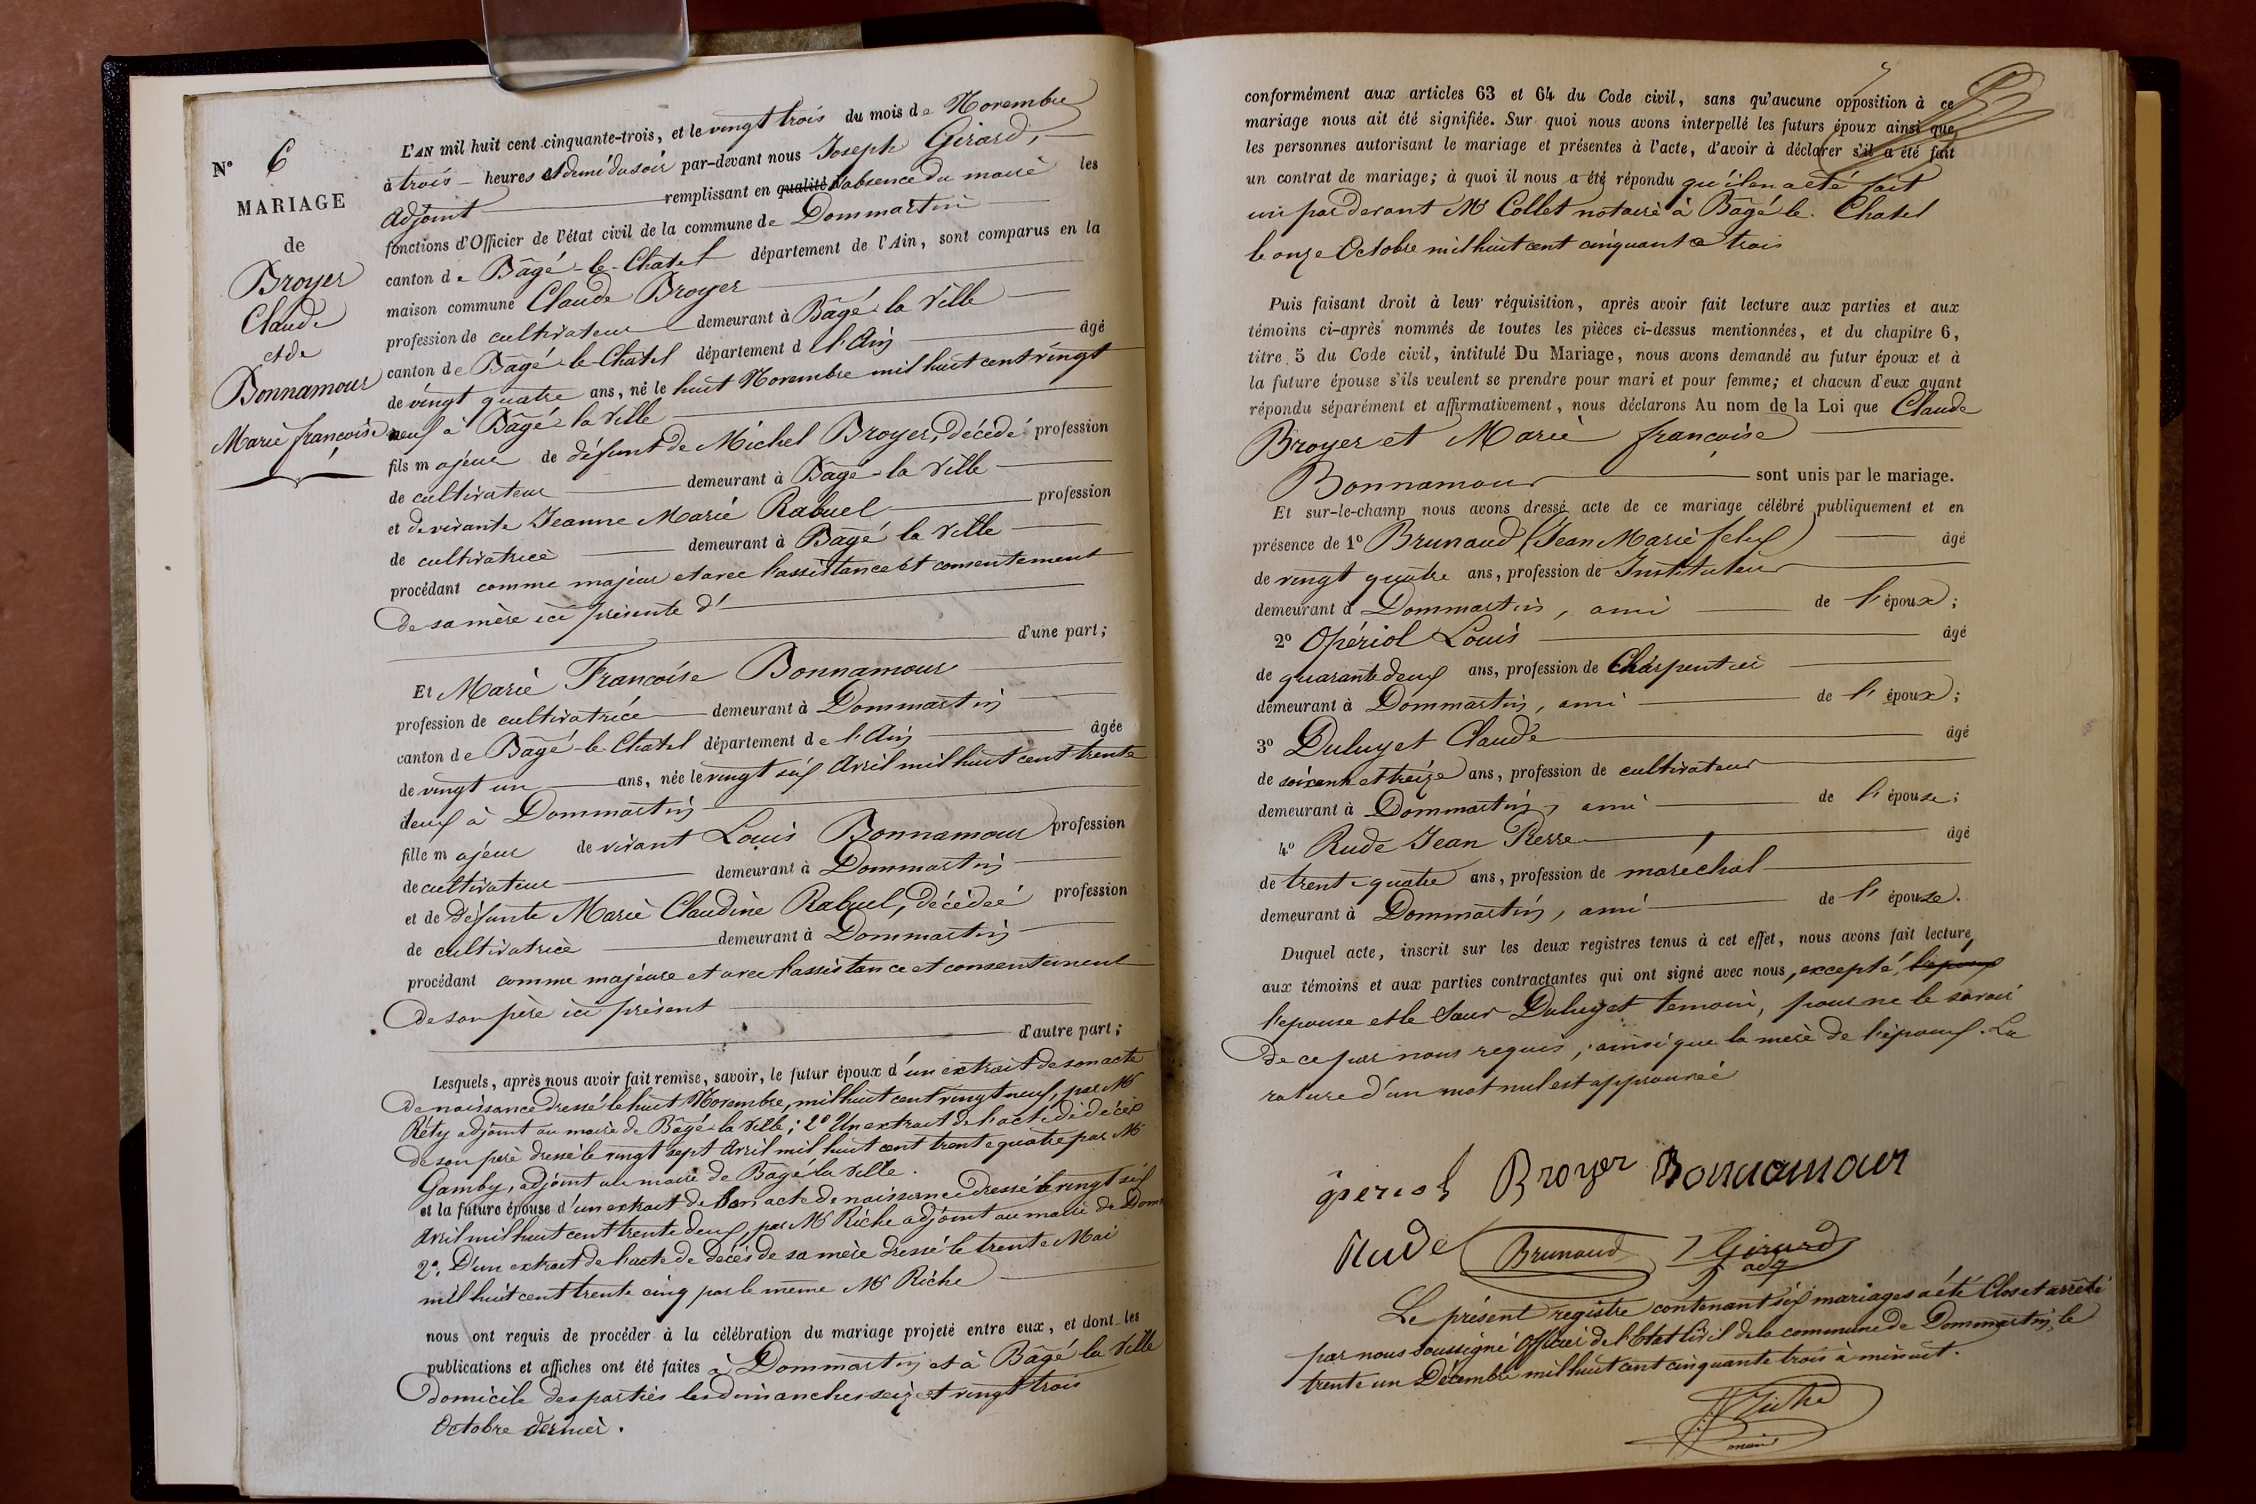 N° 6
MARIAGE
de
Broyer
Claude
et de
Bonnamour
Marie françoise
L'AN mil huit cent cinquante-trois, et le vingt trois du mois de Novembre
à trois heures et demi du soir par-devant nous Joseph Girard,
adjoint remplissant en qualité d'absence du maire les
fonctions d'Officier de l'état civil de la commune de Dommartin
canton de Bâgé-le-Chatel département de l'Ain, sont comparus en la
maison commune Claude Broyer
profession de cultivateur demeurant à Bâgé la Ville
canton de Bâgé-le-Chatel département d l'Ain âgé
de vingt quatre ans, né le huit Novembre mil huit cent vingt
neuf à Bâgé la Ville
fils majeur de défunt de Michel Broyer, décédé profession
de cultivateur demeurant à Bâgé-la Ville
et de vivante Jeanne Marie Rabuel profession
de cultivatrice demeurant à Bâgé la Ville
procédant comme majeur et avec l'assistance et consentement
de sa mère ici présente d'
d'une part;
Et Marie Françoise Bonnamour
profession de cultivatrice demeurant à Dommartin
canton de Bâgé-le-Chatel département de l'Ain âgée
de vingt un ans, née le vingt six Avril mil huit cent trente
deux à Dommartin
fille majeur de vivant Louis Bonnamour profession
de cultivateur demeurant à Dommartin
et de défunte Marie Claudine Rabuel, décédée profession
de cultivatrice demeurant à Dommartin
procédant comme majeure et avec l'assistance et consentement
de son père ici présent
d'autre part;
Lesquels, après nous avoir fait remise, savoir, le futur époux d'un extrait de son acte
de naissance dressé le huit Novembre, mil huit cent vingt neuf, par Mr
Réty adjoint au maire de Bâgé la Ville; 2° Un extrait de l'acte de décès
de son père dressé le vingt sept Avril mil huit cent trente quatre par Mr
Gamby, adjoint au maire de Bâgé la Ville.
et la future épouse d'un extrait de son acte de naissance dressé le vingt six
Avril mil huit cent trente deux, par Mr Riche adjoint au maire de Dom
2°. D'un extrait de l'acte de décès de sa mère dressé le trente Mai
mil huit cent trente cinq par le même Mr Riche
nous ont requis de procéder à la célébration du mariage projeté entre eux, et dont les
publications et affiches ont été faites à Dommartin et à Bâgé la Ville
domicile des parties les dimanches seize et vingt trois
Octobre dernier.
7
conformément aux articles 63 et 64 du Code civil, sans qu'aucune opposition à ce
mariage nous ait été signifiée. Sur quoi nous avons interpellé les futurs époux ainsi que
les personnes autorisant le mariage et présentes à l'acte, d'avoir à déclarer s'il a été fait
un contrat de mariage; à quoi il nous a été répondu qu'il en a été fait
un par devant Mr Collet notaire à Bâgé-le-Chatel
le onze Octobre mil huit cent cinquante trois
Puis faisant droit à leur réquisition, après avoir fait lecture aux parties et aux
témoins ci-après nommés de toutes les pièces ci-dessus mentionnées, et du chapitre 6,
titre 5 du Code civil, intitulé Du Mariage, nous avons demandé au futur époux et à
la future épouse s'ils veulent se prendre pour mari et pour femme; et chacun d'eux ayant
répondu séparément et affirmativement, nous déclarons Au nom de la Loi que Claude
Broyer et Marie françoise
Bonnamour sont unis par le mariage.
Et sur-le-champ nous avons dressé acte de ce mariage célébré publiquement et en
présence de 1° Brunaud (Jean Marie felix) âgé
de vingt quatre ans, profession de Instituteur
demeurant à Dommartin, ami de l'époux;
2° Opériol Louis âgé
de quarante deux ans, profession de Charpentier
demeurant à Dommartin, ami de l'époux;
3° Duluyet Claude âgé
de soixante et treize ans, profession de cultivateur
demeurant à Dommartin, ami de l'épouse;
4° Rude Jean Pierre âgé
de trente quatre ans, profession de maréchal
demeurant à Dommartin, ami de l'épouse.
Duquel acte, inscrit sur les deux registres tenus à cet effet, nous avons fait lecture
aux témoins et aux parties contractantes qui ont signé avec nous, excepté, l'epoux
l'epouse et le Sieur Duluyet temoin, pour ne le savoir
de ce par nous requis; ainsi que la mère de l'époux. La
rature d'un mot nul est approuvée
Broyer Bonnamour
Rude Brunaud J Girard
adj
Le présent registre contenant six mariages a été Clos et arrêté
par nous soussigné Officier de l'Etat Civil de la commune de Dommartin, le
trente un Décembre mil huit cent cinquante trois à minuit.
Riche
maire